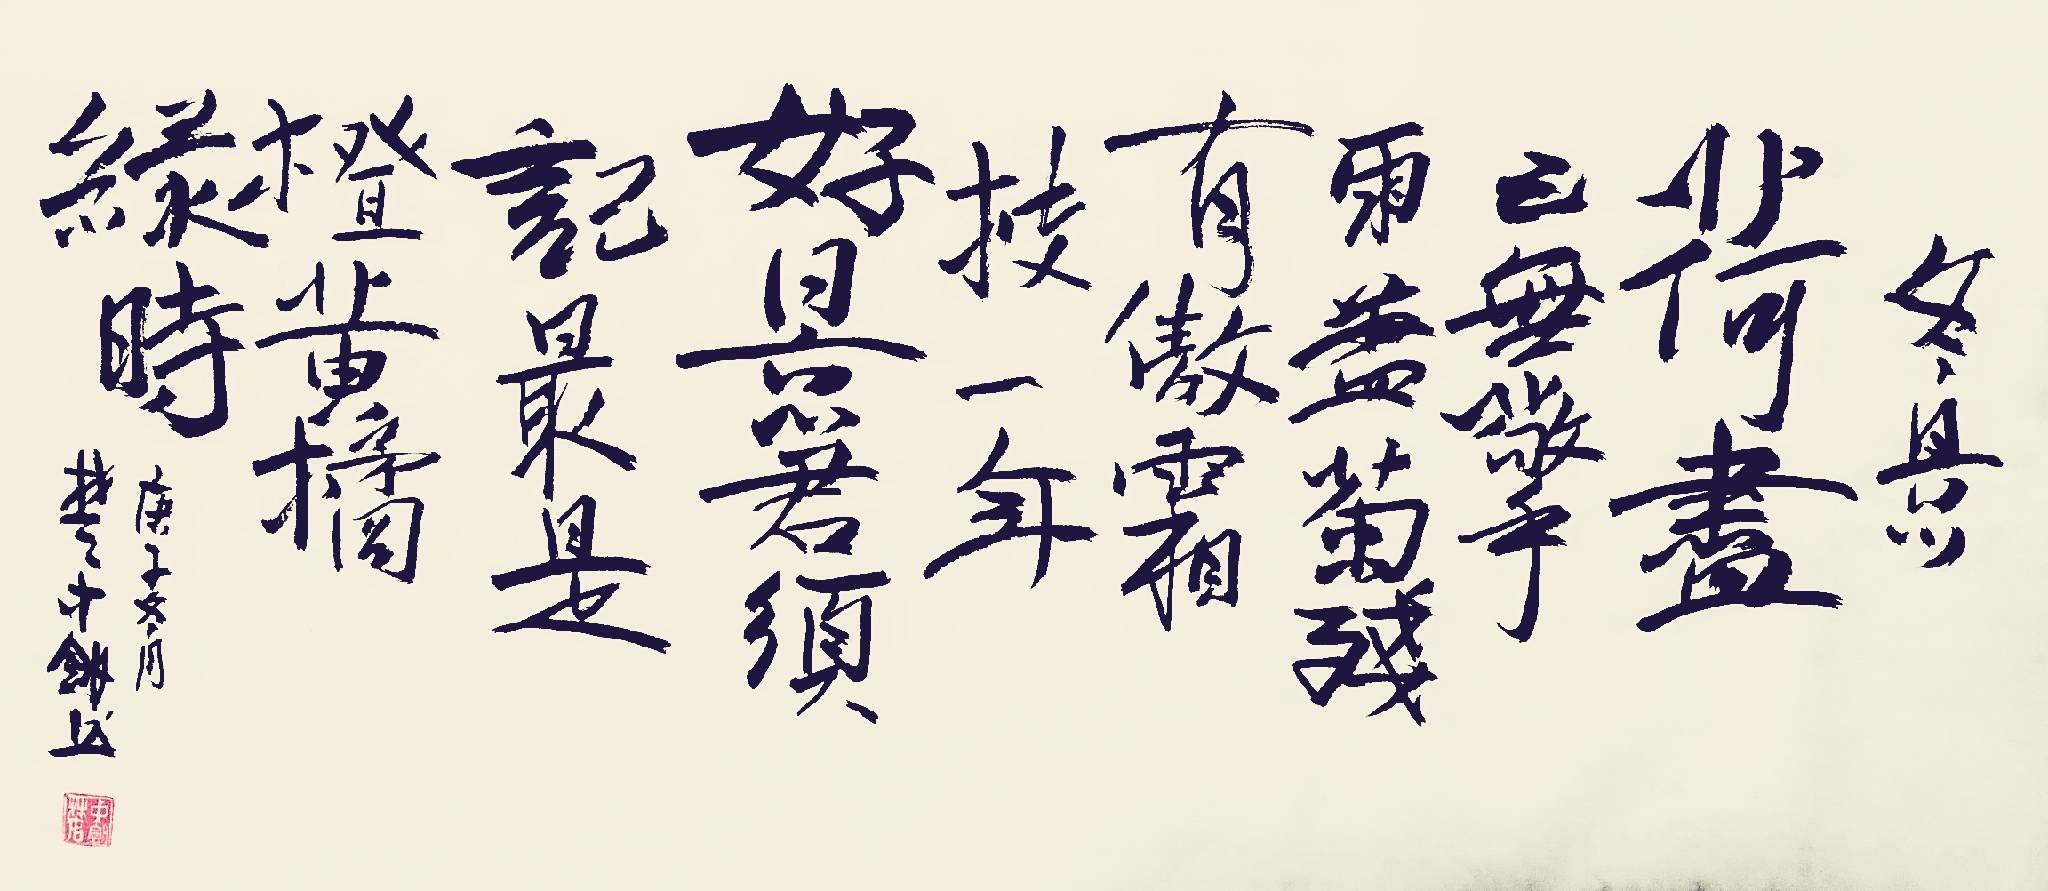 冬景
荷盡
已無擎
雨蓋菊殘
有傲霜
枝一年
好景君須
記最是
橙黃橘
綠時
庚子冬月